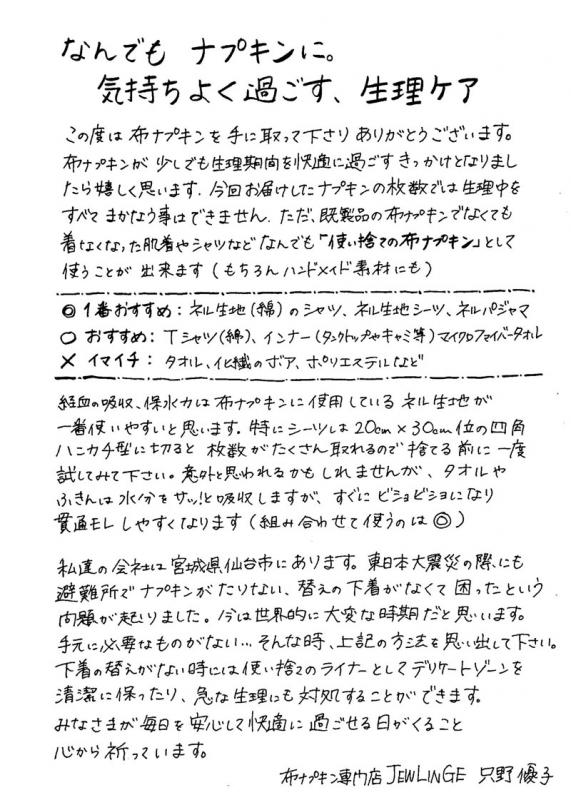 なんでも ナプキンに。
気持ちよく過ごす、生理ケア
この度は布ナプキンを手に取って下さりありがとうございます。
布ナプキンが少しでも生理期間を快適に過ごすきっかけとなりまし
たら嬉しく思います。今回お届けしたナプキンの枚数では生理中を
すべてまかなう事はできません。ただ、既製品の布ナプキンでなくても
着なくなった肌着やシャツなどなんでも「使い捨ての布ナプキン」として
使うことが出来ます(もちろんハンドメイド素材にも)
◎1番おすすめ:ネル生地(綿)のシャツ、ネル生地シーツ、ネルパジャマ
○おすすめ:Tシャツ(綿)、インナー(タンクトップやキャミ等)マイクロファイバータオル
×イマイチ:タオル、化繊のボア、ポリエステルなど
経血の吸収、保水力は布ナプキンに使用しているネル生地が
一番使いやすいと思います。特にシーツは20cm×30cm位の四角
ハニカチ型に切ると枚数がたくさん取れるので捨てる前に一度
試してみて下さい。意外と思われるかもしれませんが、タオルや
ふきんは水分をサッ!と吸収しますが、すぐにビショビショになり
貫通モレしやすくなります(組み合わせて使うのは◎)
私達の会社は宮城県仙台市にあります。東日本大震災の際にも
避難所でナプキンがたりない、替えの下着がなくて困ったという
問題が起りました。今は世界的に大変な時期だと思います。
手元に必要なものがない…そんな時、上記の方法を思い出して下さい。
下着の替えがない時には使い捨てのライナーとしてデリケートゾーンを
清潔に保ったり、急な生理にも対処することができます。
みなさまが毎日を安心して快適に過ごせる日がくること
心から祈っています。
布ナプキン専門店 JEWLINGE 只野優子